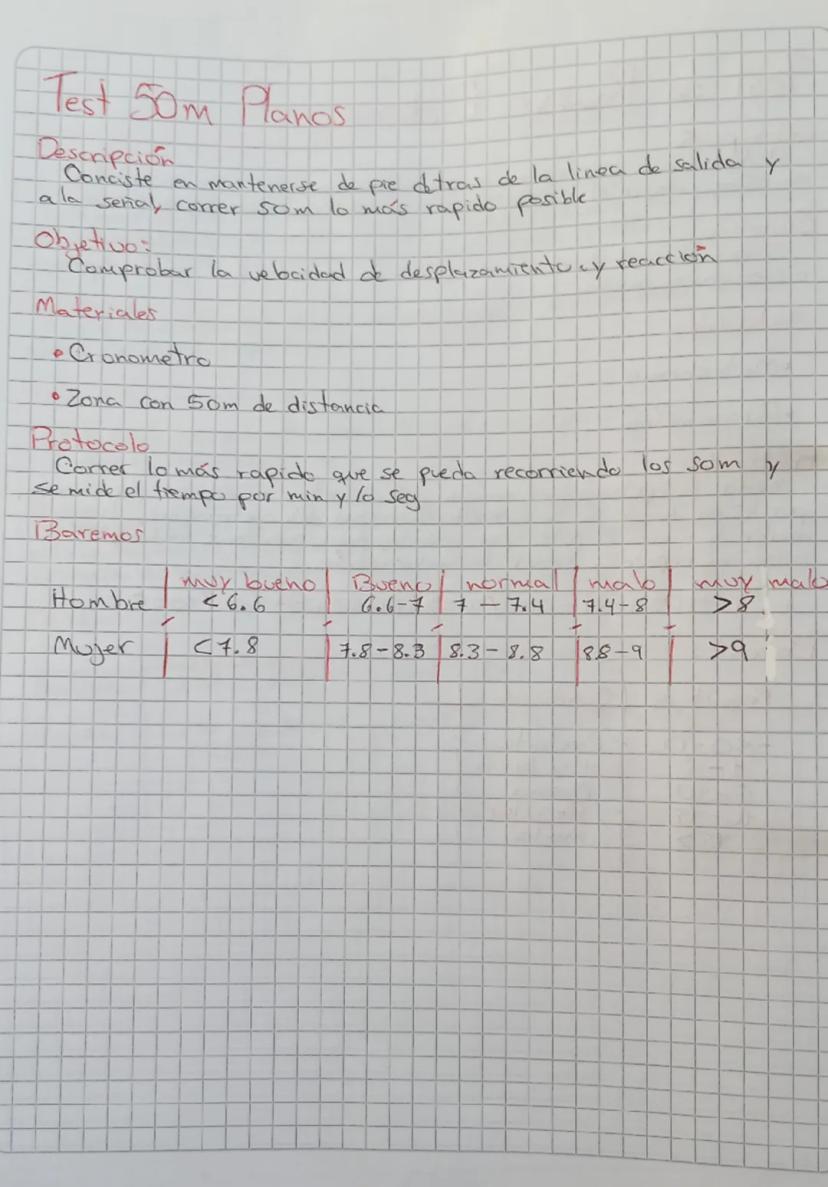 Test 50m Planos
Descripción
Conciste en mantenerse de pie detras de la linea de salida y
a la señal, correr 50m lo más rapido posible
Objetivo:
Comprobar la velocidad de desplazamiento y reacción
Materiales
• Cronometro
• Zona con 50m de distancia
Protocolo
Correr lo más rapido que se pueda recorriendo los 50m y
se mide el tiempo por min y lo seg
Baremos
muy bueno | Bueno | normal | malo | muy malo
Hombre | <6.6 | 6.6-7 | 7-7.4 | 7.4-8 | >8
Mujer | <7.8 | 7.8-8.3 | 8.3-8.8 | 8.8-9 | >9